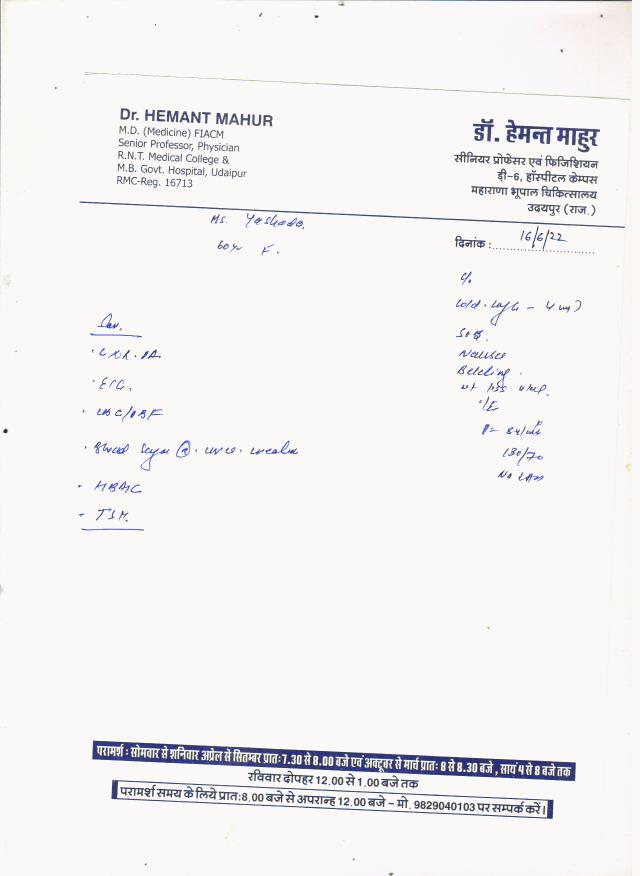 Dr. HEMANT MAHUR
M.D. (Medicine) FIACM
Senior Professor, Physician
R.N.T. Medical College &
M.B. Govt. Hospital, Udaipur
RMC-Reg. 16713
डॉ. हेमन्त माहुर
सीनियर प्रोफेसर एवं फिजिशियन
डी-6, हॉस्पीटल केम्पस
महाराणा भूपाल चिकित्सालय
उदयपुर (राज.)
Ms. Yashoda.
60yr F.
दिनांक : 16/6/22
C/o
SOB.
Nausea
Belching.
O/E
P = 84/mt
130/70
Inv.
· CXR. PA
· ECG.
· CBC/PBF
· Blood Sugar (R). urea.
· HBA1C
· TSH.
परामर्श : सोमवार से शनिवार अप्रेल से सितम्बर प्रातः 7.30 से 8.00 बजे एवं अक्टूबर से मार्च प्रातः 8 से 8.30 बजे , सायं 4 से 8 बजे तक
रविवार दोपहर 12.00 से 1.00 बजे तक
परामर्श समय के लिये प्रातः 8.00 बजे से अपरान्ह 12.00 बजे – मो. 9829040103 पर सम्पर्क करें।